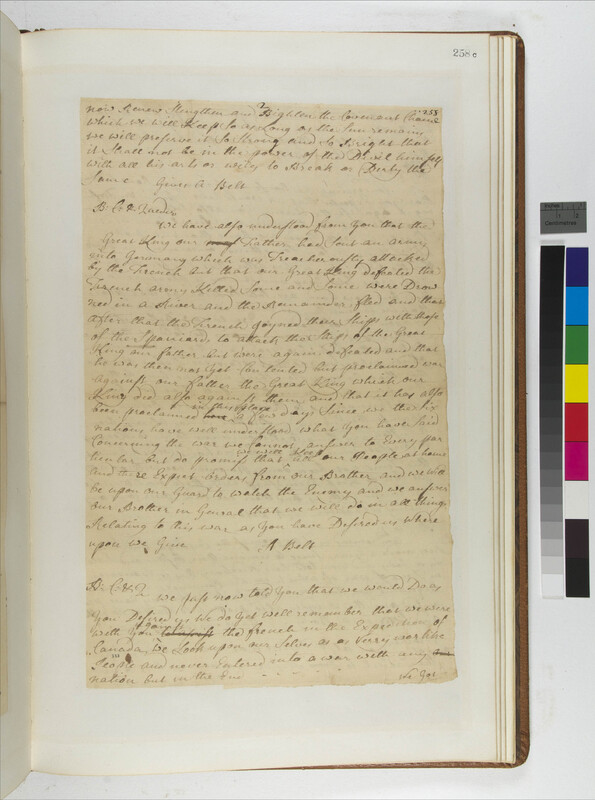 258 c
258
now Renew Strengthen and Brighten the Covenant Chaine
which we will Keep so as Long as the Sun remains
we will preserve it So Strong and So Bright that
it Shall not be in the power of the Devil himself
with all his arts or ways to Break or Derty the
Same Gives A Belt
B. C: & Queder
We have also understood from you that the
Great King our Father had sent an army
into Germany which was Treacherously attacked
by the French but that our Great King defeated the
French army Killed Some and Some were Drow
ned in a River and the Remainder fled and that
after that the French joyned their Ships with those
of the Spaniards to attack the Ships of the Great
King our father but were again defeated and that
he was then not yet Contented but proclaimed war
against our father the Great King which our
King did also against them, and that it has also
in this place
been proclaimed a few days Since we the Six
nations have well understood what You have Said
Concerning the war we Cannot answer to Every par
we will keep
ticular but do promiss that all our People at home
and there Expect orders from our Brother and we will
be upon our Guard to watch the Enemy and we answer
our Brother in General that we will do in all things
Relating to this war as You have Desired us Where
upon we Give A Belt
B: C: & Q we just now told You that we would Do as
You Desired us We do Yet well remember that we were
against
with You the french in the Expedition of
Canada, We Look upon our Selves as a Verry warlike
People and never Entered into a war with any
nation but in the End
We Got